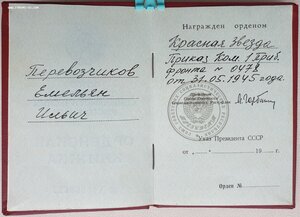 Перевозчиков
Емельян
Ильич
Награжден орденом
Красная Звезда
Приказ Ком. 1 Приб.
фронта № 0478
от 31.05.1945 года.
Указ Президента СССР
от „ " 19 г.
Орден №